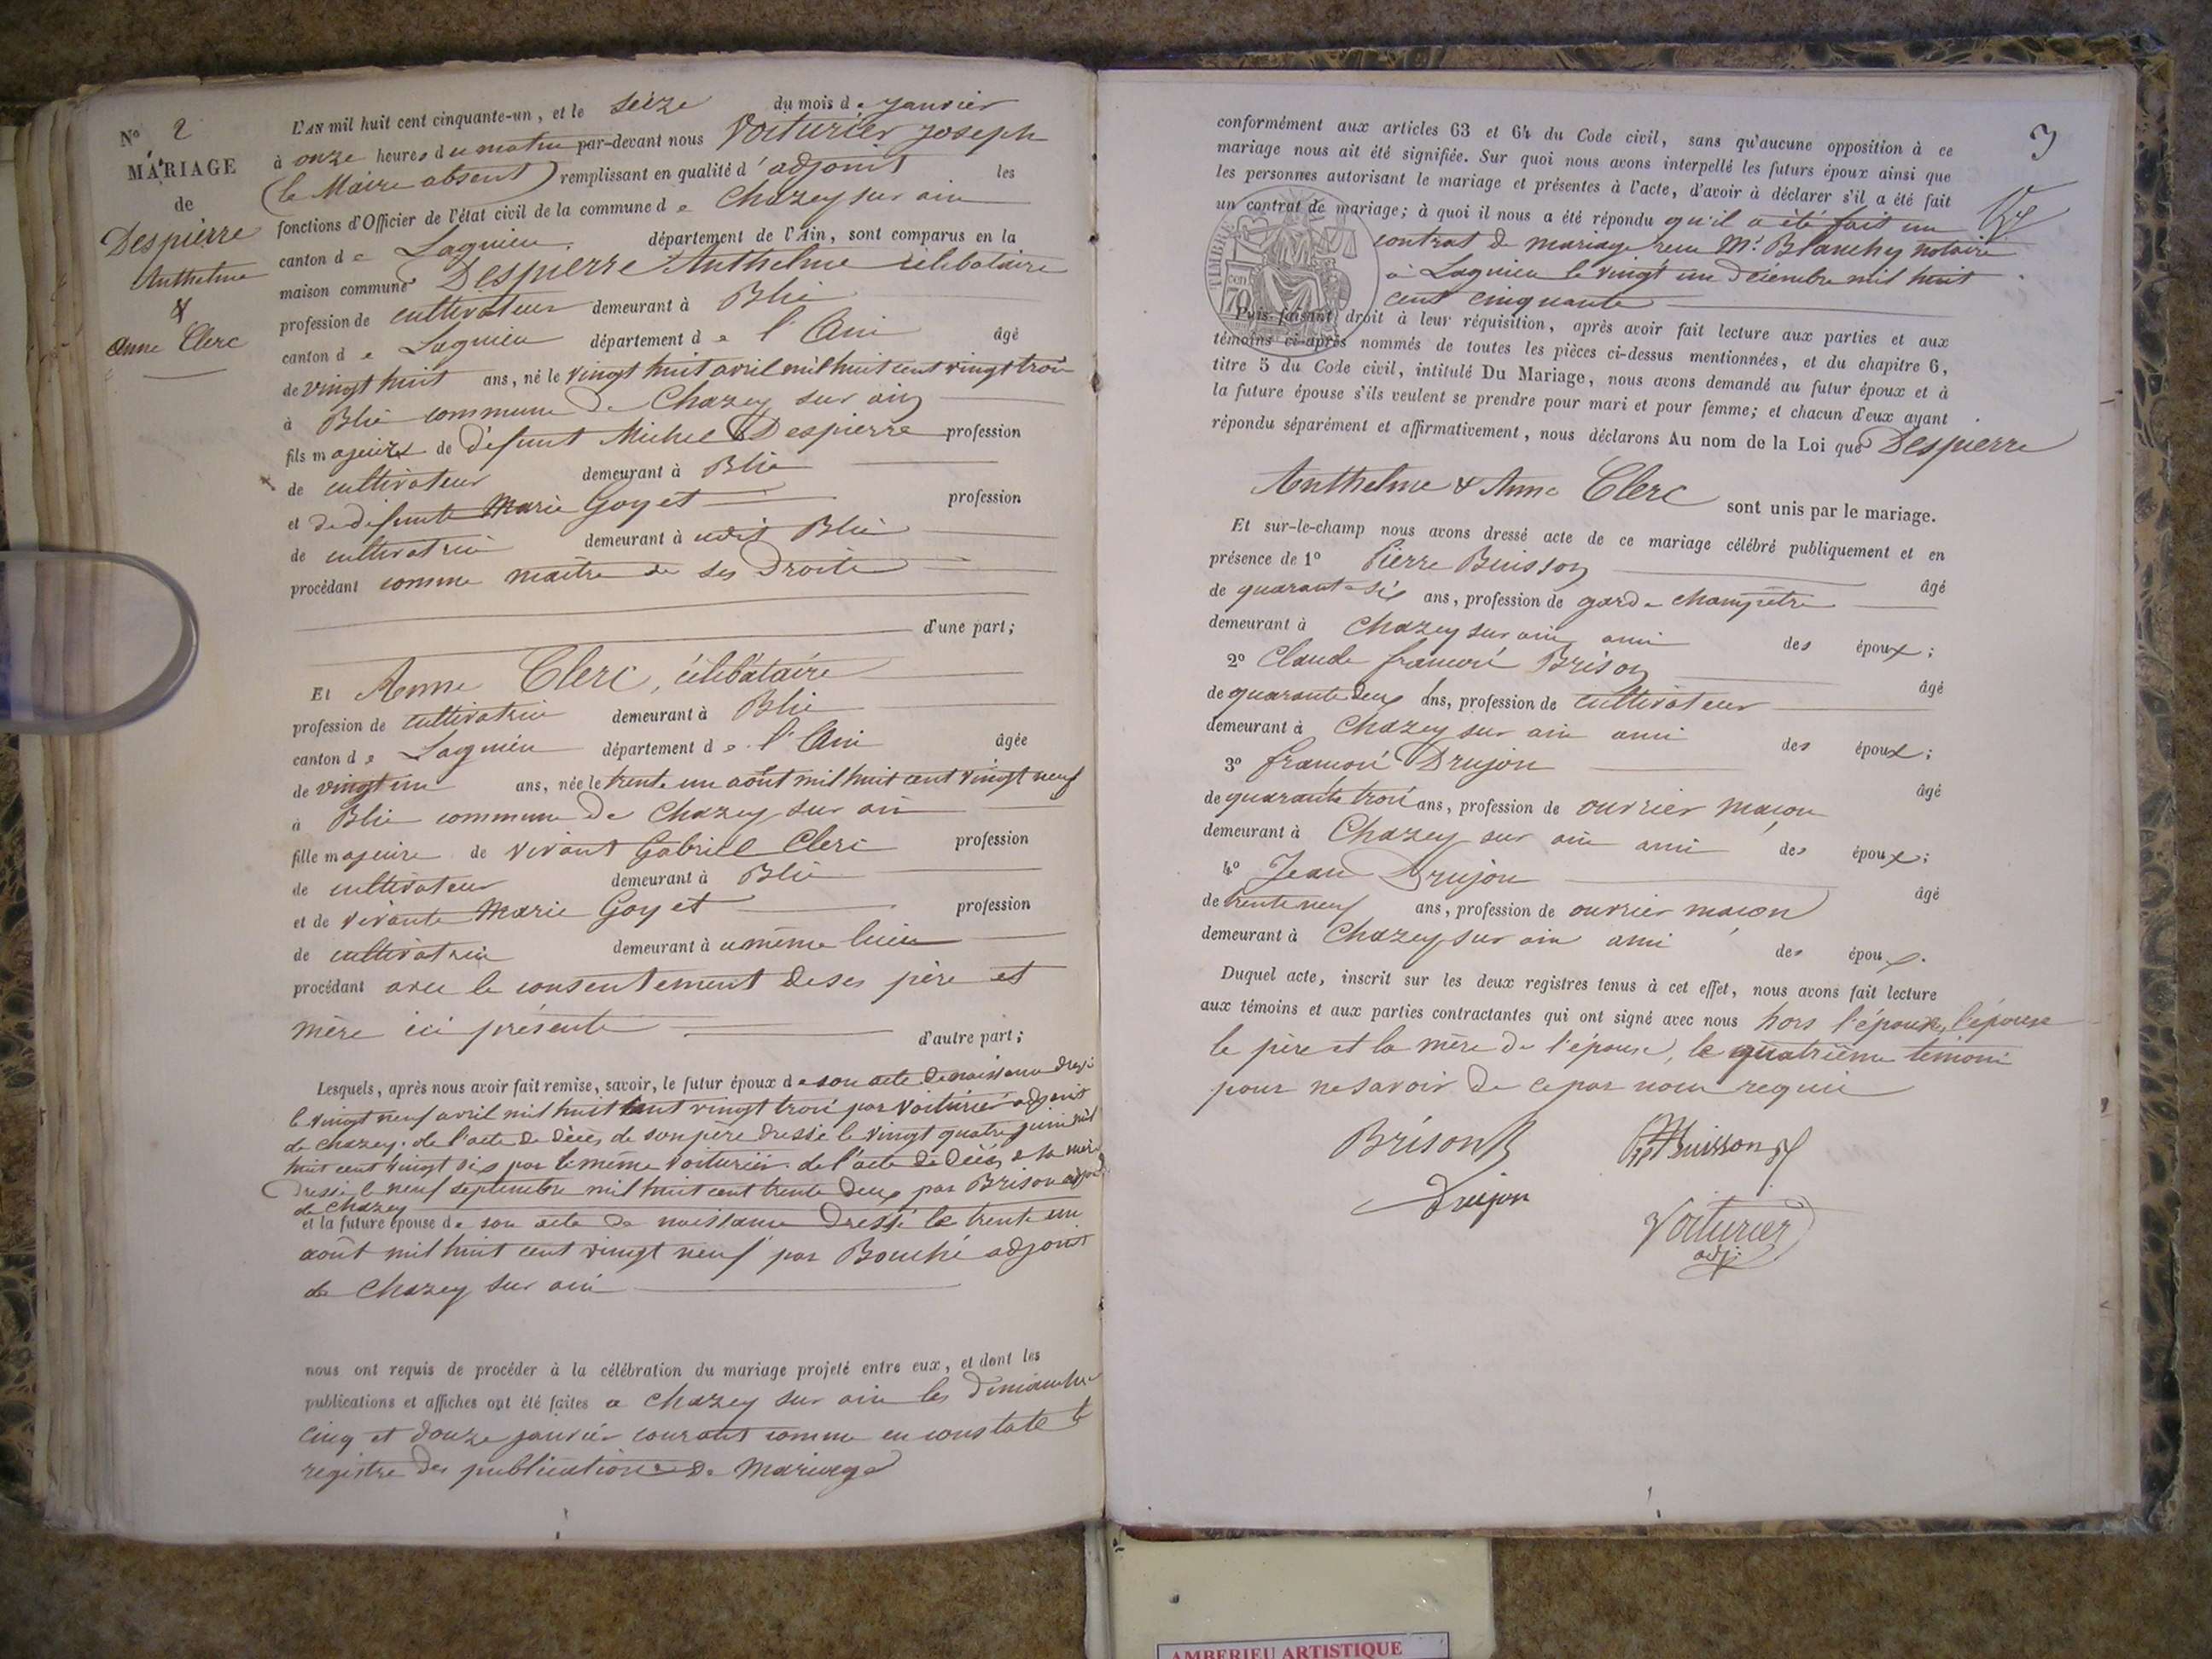 N° 2
MARIAGE
de
Despierre
Anthelme
&
Anne Clerc
L'AN mil huit cent cinquante-un, et le seize du mois de janvier
à onze heures du matin par-devant nous Voiturier joseph
(le Maire absent) remplissant en qualité d'adjoint les
fonctions d'Officier de l'état civil de la commune de Chazey sur ain
canton de Lagnieu, département de l'Ain, sont comparus en la
maison commune Despierre Anthelme célibataire
profession de cultivateur demeurant à Blie
canton de Lagnieu département de l'Ain âgé
de vingt huit ans, né le vingt huit avril mil huit cent vingt trois
à Blie commune de Chazey sur ain
fils majeur de défunt Michel Despierre profession
de cultivateur demeurant à Blie
et de défunte Marie Goyet profession
de cultivatrice demeurant à udit Blie
procédant comme maitre de ses Droits
d'une part;
Et Anne Clerc, célibataire
profession de cultivatrice demeurant à Blie
canton de Lagnieu département de l'Ain âgée
de vingt un ans, née le trente un août mil huit cent vingt neuf
à Blie commune de Chazey sur ain
fille majeure de vivant Gabriel Clerc profession
de cultivateur demeurant à Blie
et de vivante Marie Goyet profession
de cultivatrice demeurant à u même lieu
procédant avec le consentement de ses père et
mère ici présents d'autre part;
Lesquels, après nous avoir fait remise, savoir, le futur époux de son acte de naissance dressé
le vingt neuf avril mil huit cent vingt trois par Voiturier adjoint
de Chazey. de l'acte de décès de son père dressé le vingt quatre juin mil
huit cent vingt six par le même Voiturier. de l'acte de décès de sa mère
dressé le neuf septembre mil huit cent trente deux par Brison adjoint
de Chazey
et la future épouse de son acte de naissance dressé le trente un
août mil huit cent vingt neuf par Bouché adjoint
de Chazey sur ain
nous ont requis de procéder à la célébration du mariage projeté entre eux, et dont les
publications et affiches ont été faites a Chazey sur ain les dimanche
cinq et douze janvier courant comme en constate le
registre des publications de Mariage
3
conformément aux articles 63 et 64 du Code civil, sans qu'aucune opposition à ce
mariage nous ait été signifiée. Sur quoi nous avons interpellé les futurs époux ainsi que
les personnes autorisant le mariage et présentes à l'acte, d'avoir à déclarer s'il a été fait
un contrat de mariage; à quoi il nous a été répondu qu'il a été fait un
contrat de mariage reçu Mr. Blanchy notaire
à Lagnieu le vingt un décembre mil huit
cent cinquante
TIMBRE
70
Puis faisant droit à leur réquisition, après avoir fait lecture aux parties et aux
témoins ci-après nommés de toutes les pièces ci-dessus mentionnées, et du chapitre 6,
titre 5 du Code civil, intitulé Du Mariage, nous avons demandé au futur époux et à
la future épouse s'ils veulent se prendre pour mari et pour femme; et chacun d'eux ayant
répondu séparément et affirmativement, nous déclarons Au nom de la Loi que Despierre
Anthelme & Anne Clerc sont unis par le mariage.
Et sur-le-champ nous avons dressé acte de ce mariage célébré publiquement et en
présence de 1° Pierre Buisson âgé
de quarante six ans, profession de garde champêtre
demeurant à Chazey sur ain ami des époux;
2° Claude françois Brison âgé
de quarante deux ans, profession de cultivateur
demeurant à Chazey sur ain ami des époux;
3° françois Drujon âgé
de quarante trois ans, profession de ouvrier maçon
demeurant à Chazey sur ain ami des époux;
4° Jean Drujon âgé
de trente neuf ans, profession de ouvrier maçon
demeurant à Chazey sur ain ami des époux.
Duquel acte, inscrit sur les deux registres tenus à cet effet, nous avons fait lecture
aux témoins et aux parties contractantes qui ont signé avec nous hors l'époux, l'épouse
le père et la mère de l'épouse, le quatrième témoin
pour ne savoir de ce par nous requis
Brison Buisson
Drujon
Voiturier
adj:
AMBERIEU ARTISTIQUE